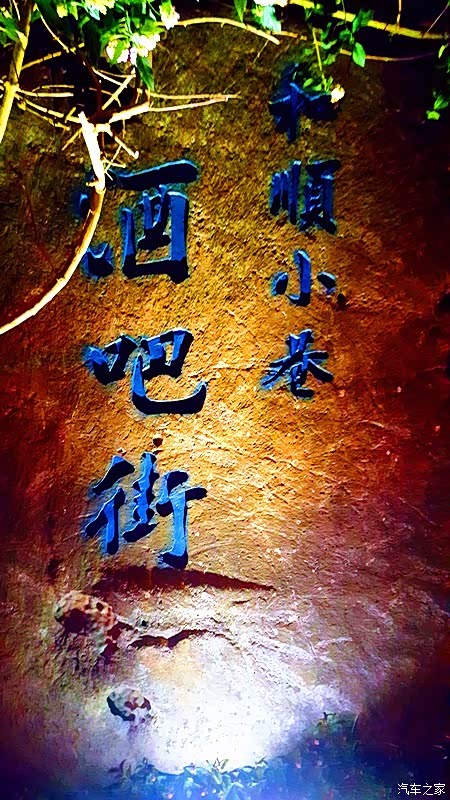 和順小巷
酒吧街
汽车之家